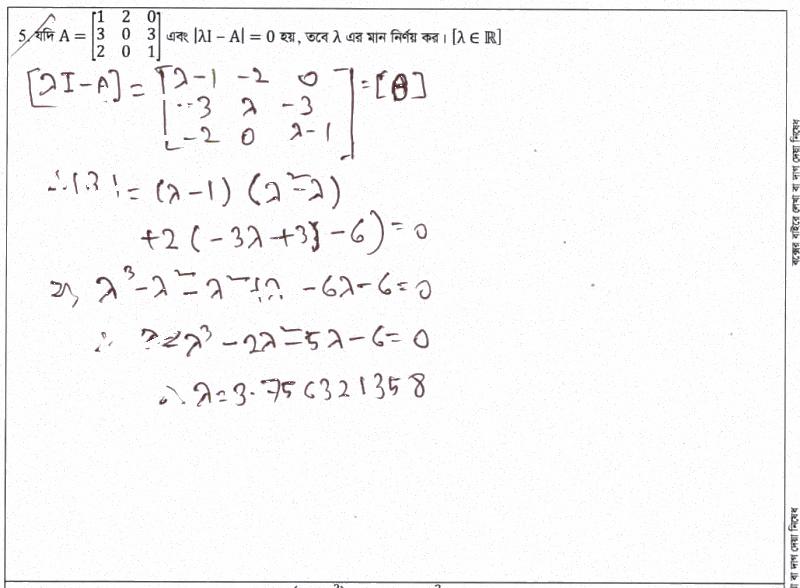 5. যদি A = [1 2 0 3 0 3 2 0 1] এবং |λI − A| = 0 হয়, তবে λ এর মান নির্ণয় কর। [λ ∈ ℝ]
[λI-A] = [λ-1 -2 0
-3 λ -3 = [θ]
-2 0 λ-1]
= (λ-1) (λ²-λ)
+2 (-3λ+3 -6) = 0
λ³-λ²-λ²+λ -6λ-6=0
∴ λ³ - 2λ²-5λ-6=0
∴ λ=3.756321358
বক্সের বাইরে লেখা বা দাগ দেয়া নিষেধ
া বা দাগ দেয়া নিষেধ